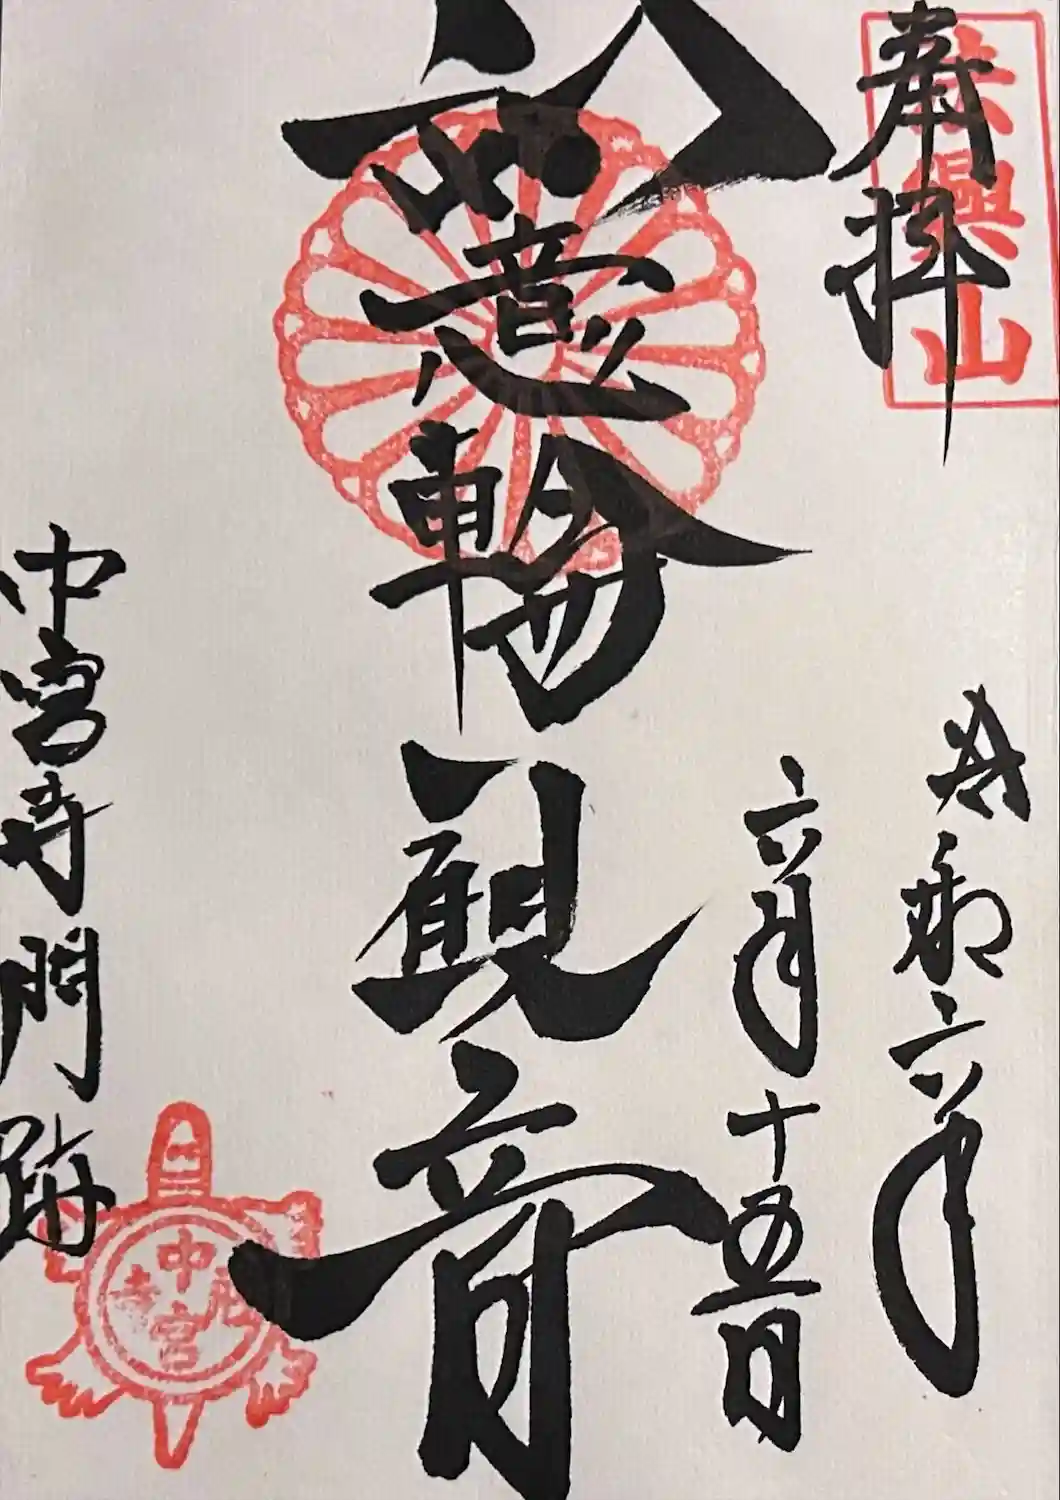 奉拝
法興山
令和六年
六月十五日
如意輪観音
中宮寺門跡
中宮
寺